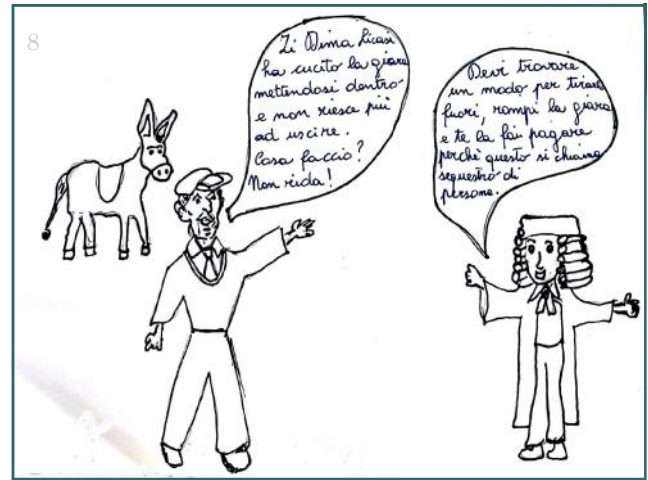 8
Zi Dima Licasi
ha cucito la giara
mettendosi dentro
e non riesce più
ad uscire.
Cosa faccio?
Non rida!
Devi trovare
un modo per tirarlo
fuori, rompi la giara
e te la fai pagare
perchè questo si chiama
sequestro di
persone.